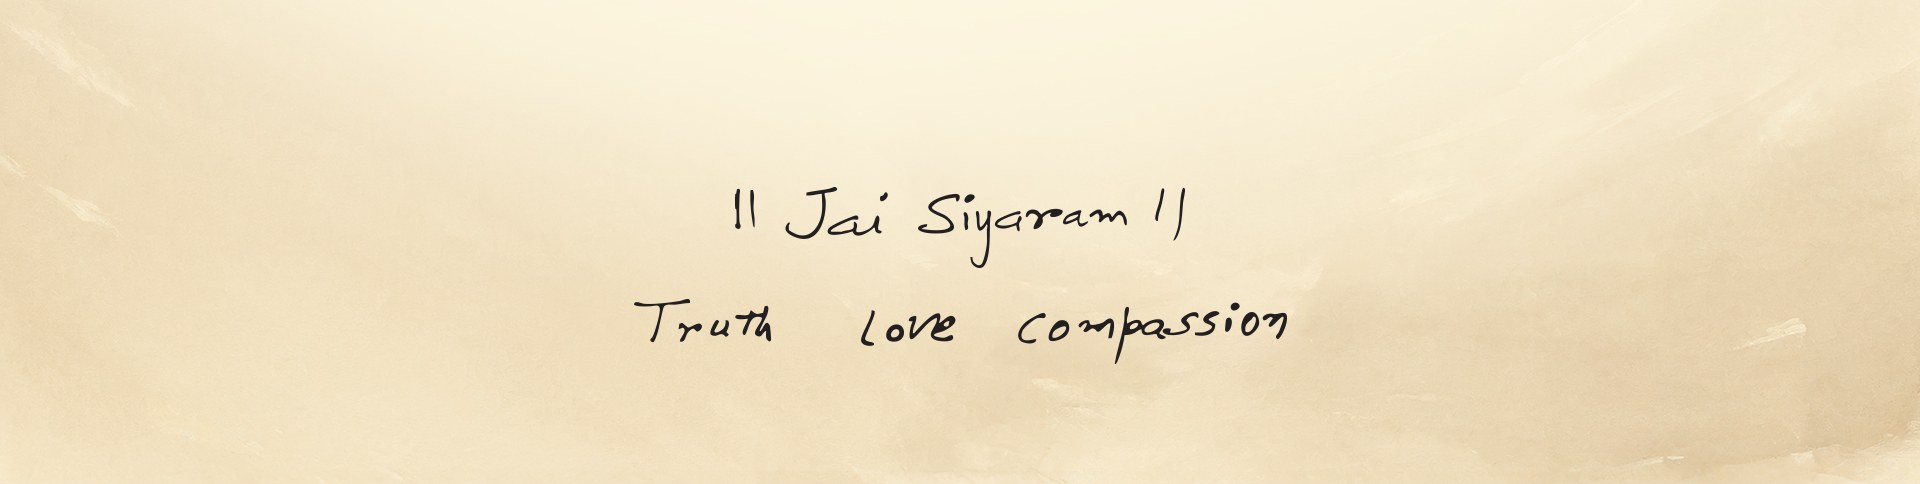 || Jai Siyaram ||
Truth love compassion